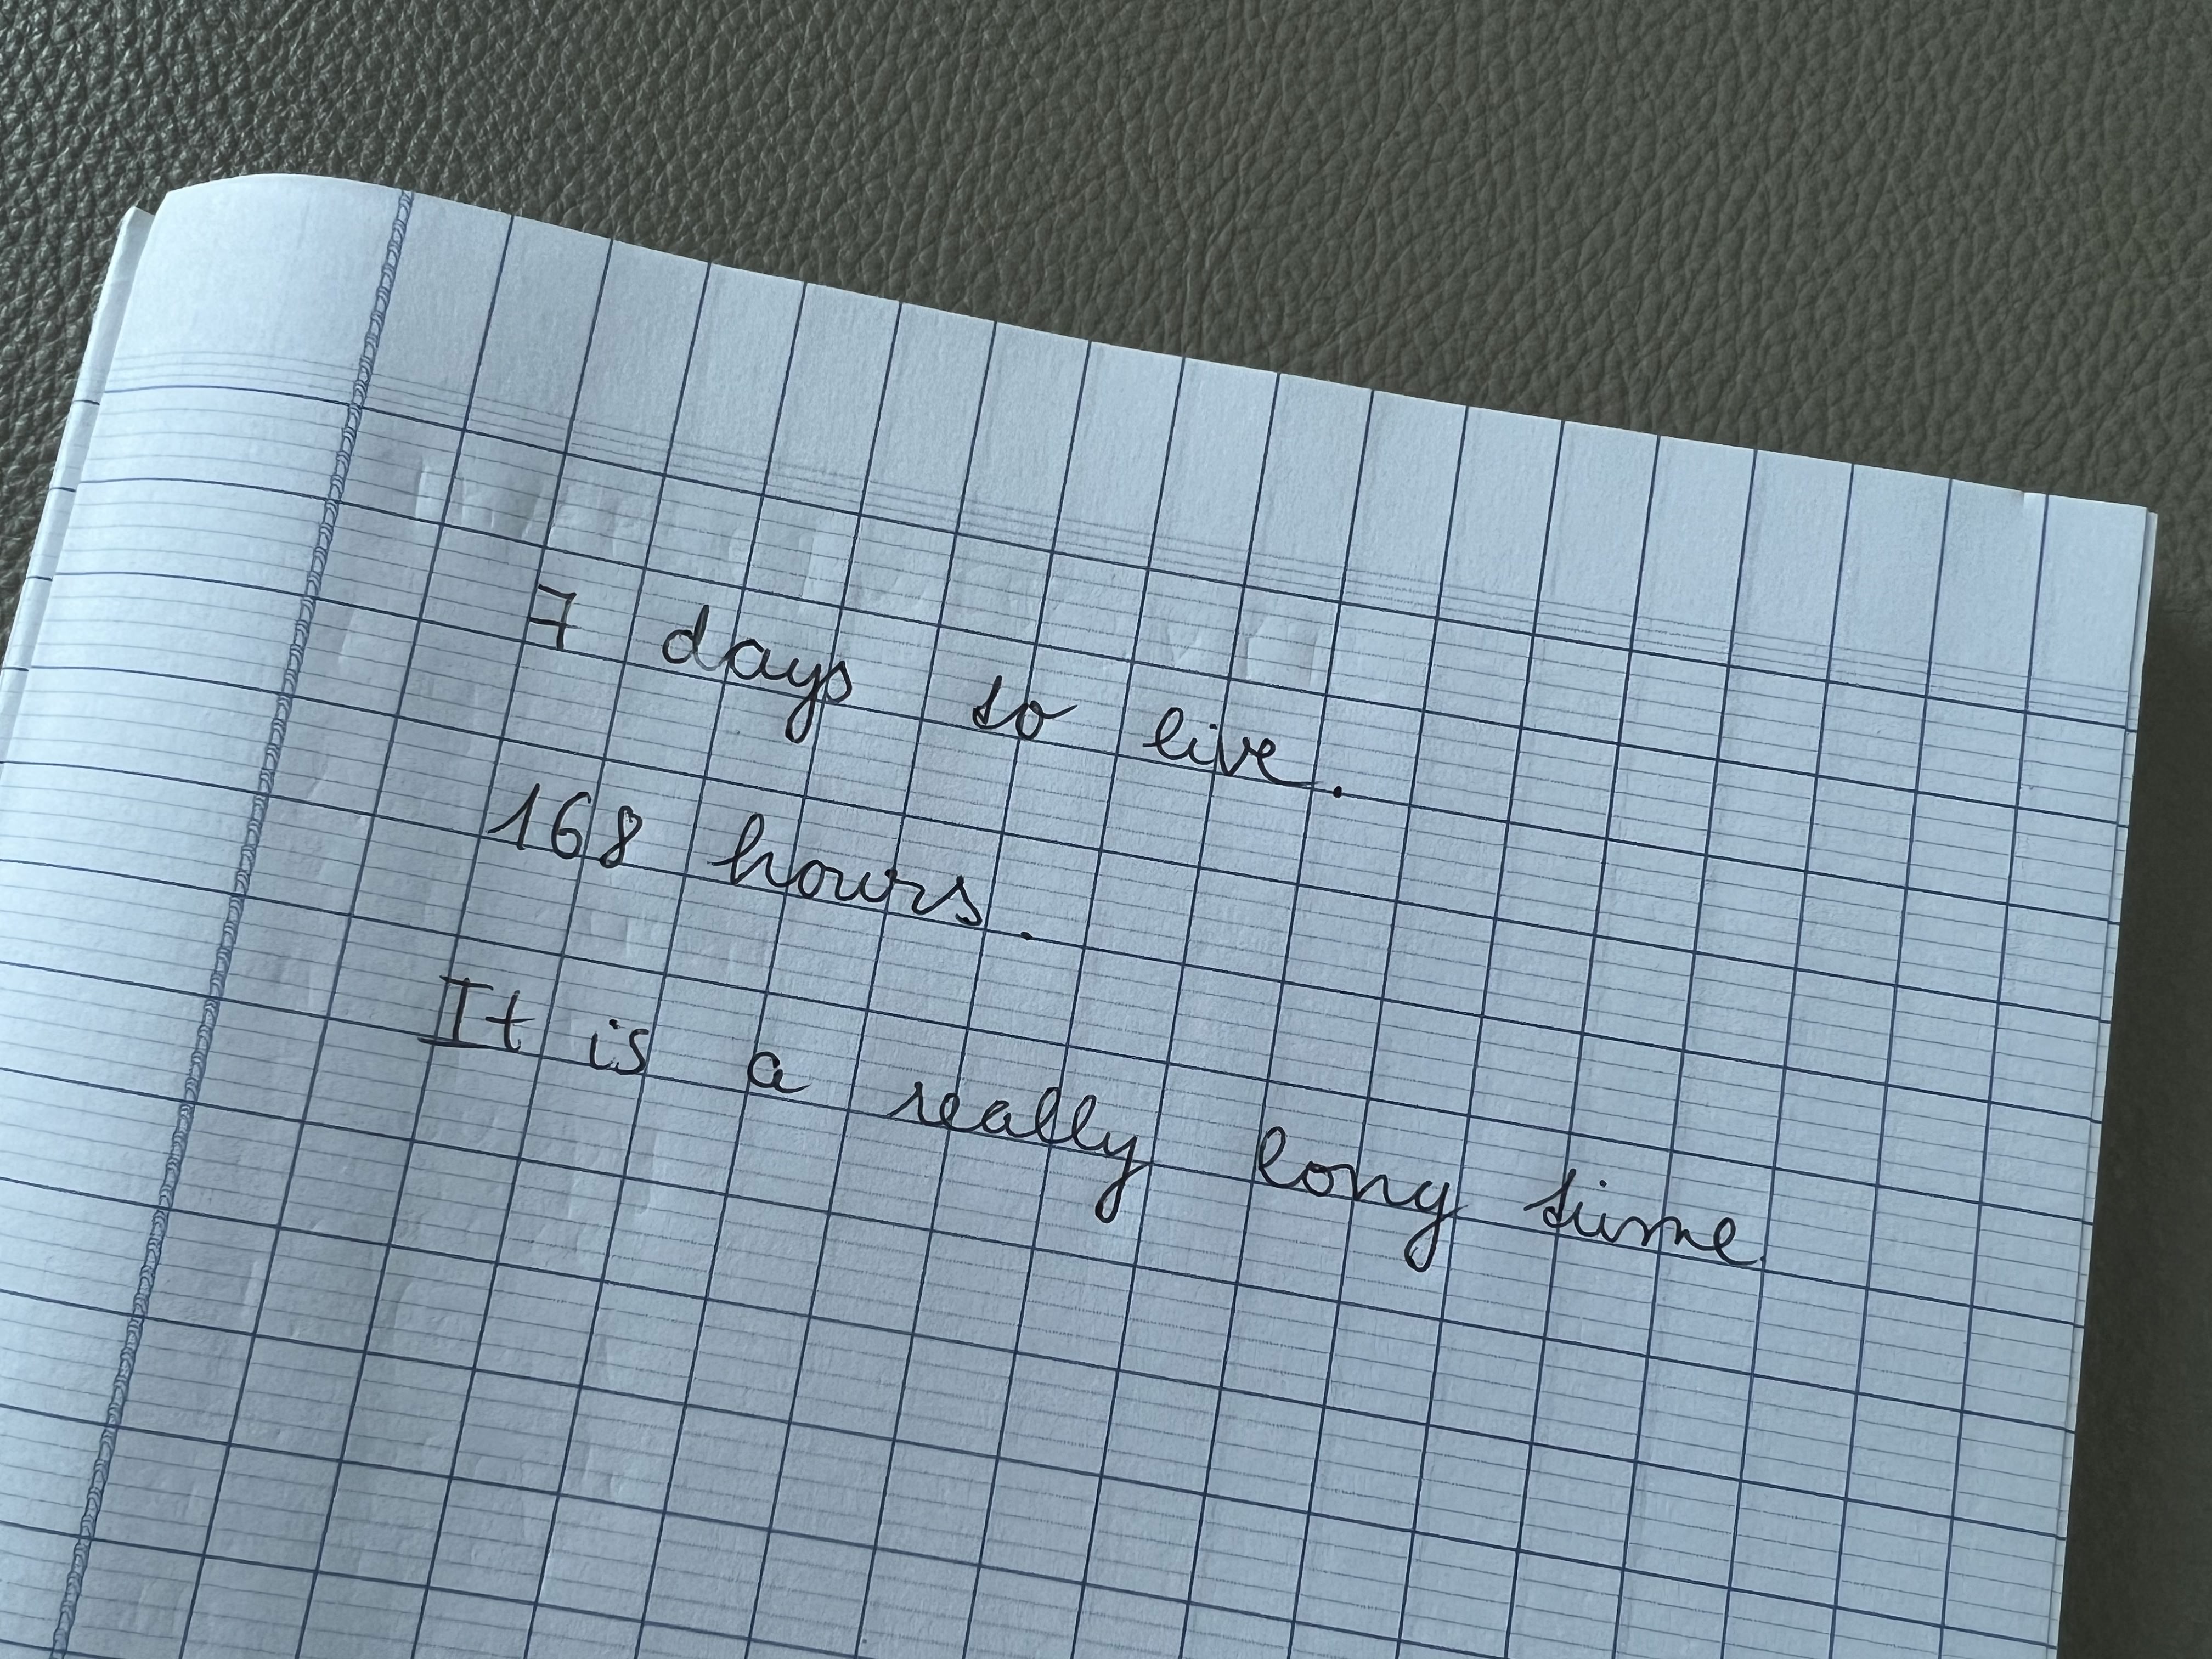 7 days to live.
168 hours.
It is a really long time